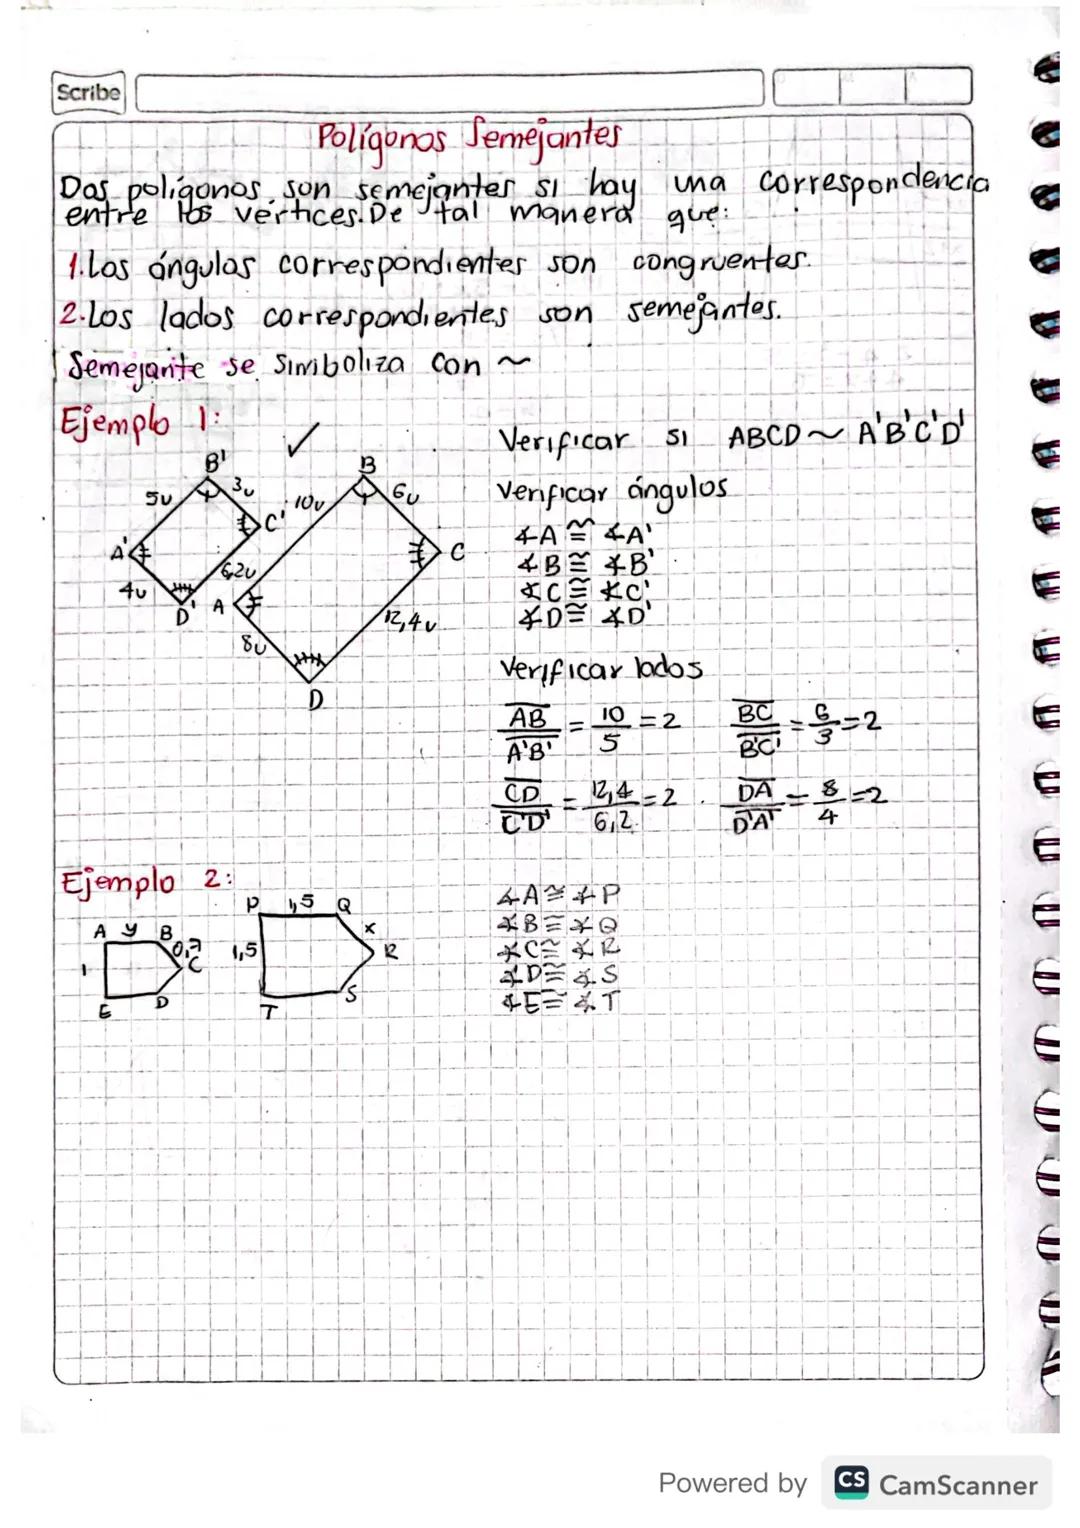 Scribe
Polígonos Semejantes
Dos polígonos son semejantes si hay una correspondencia
entre los vértices. De tal manera que:
1. Los ángulos correspondientes son congruentes.
2. Los lados correspondientes son semejantes.
Semejante se simboliza con ~
Ejemplo 1:
Verificar si ABCD ~ A'B'C'D'
B'
B
5u
3u
10u
6u
Verificar ángulos
A'
C'
C
∡A ≅ ∡A'
∡B ≅ ∡B'
∡C ≅ ∡C'
∡D ≅ ∡D'
4u
6,2u
D'
A
12,4u
8u
D
Verificar lados
AB/A'B' = 10/5 = 2 BC/B'C' = 6/3 = 2
CD/C'D' = 12,4/6,2 = 2 . DA/D'A' = 8/4 = 2
Ejemplo 2:
P 1,5 Q
A y B
x
0,7
C
1,5
R
1
E
D
S
T
∡A ≅ ∡P
∡B ≅ ∡Q
∡C ≅ ∡R
∡D ≅ ∡S
∡E ≅ ∡T
Powered by CS CamScanner